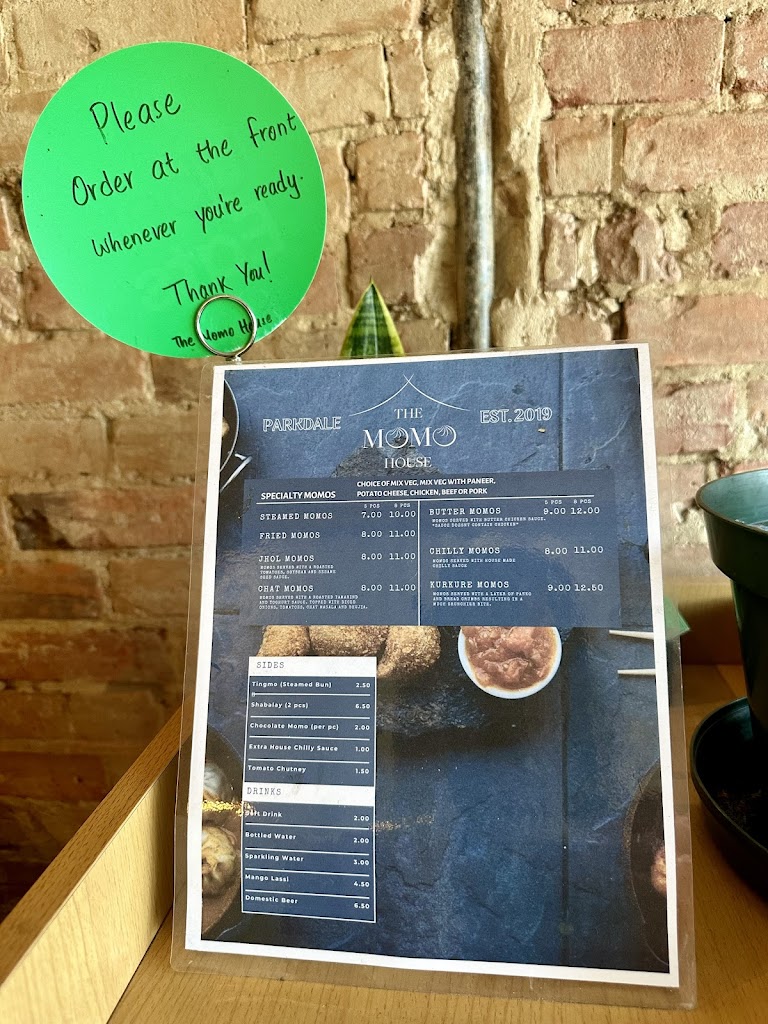 Please
Order at the front
whenever you're ready.
Thank You!
The Momo House
PARKDALE
THE
MOMO
HOUSE
EST. 2019
SPECIALTY MOMOS
CHOICE OF MIX VEG, MIX VEG WITH PANEER,
POTATO CHEESE, CHICKEN, BEEF OR PORK
5 PCS 8 PCS
STEAMED MOMOS 7.00 10.00
FRIED MOMOS 8.00 11.00
JHOL MOMOS 8.00 11.00
MOMOS SERVED WITH A ROASTED
TOMATOES, SOYBEAN AND SESAME
SEED SAUCE.
CHAT MOMOS 8.00 11.00
MOMOS SERVED WITH A ROASTED TAMARIND
AND YOGHURT SAUCE. TOPPED WITH DICED
ONIONS, TOMATOES, CHAT MASALA AND BHUJIA.
5 PCS 8 PCS
BUTTER MOMOS 9.00 12.00
MOMOS SERVED WITH BUTTER CHICKEN SAUCE.
*SAUCE DOESNT CONTAIN CHICKEN*
CHILLY MOMOS 8.00 11.00
MOMOS SERVED WITH HOUSE MADE
CHILLY SAUCE
KURKURE MOMOS 9.00 12.50
MOMOS SERVED WITH A LAYER OF PANKO
AND BREAD CRUMBS RESULTING IN A
MUCH CRUNCHIER BITE.
SIDES
Tingmo (Steamed Bun) 2.50
Shabalay (2 pcs) 6.50
Chocolate Momo (per pc) 2.00
Extra House Chilly Sauce 1.00
Tomato Chutney 1.50
DRINKS
Soft Drink 2.00
Bottled Water 2.00
Sparkling Water 3.00
Mango Lassi 4.50
Domestic Beer 6.50